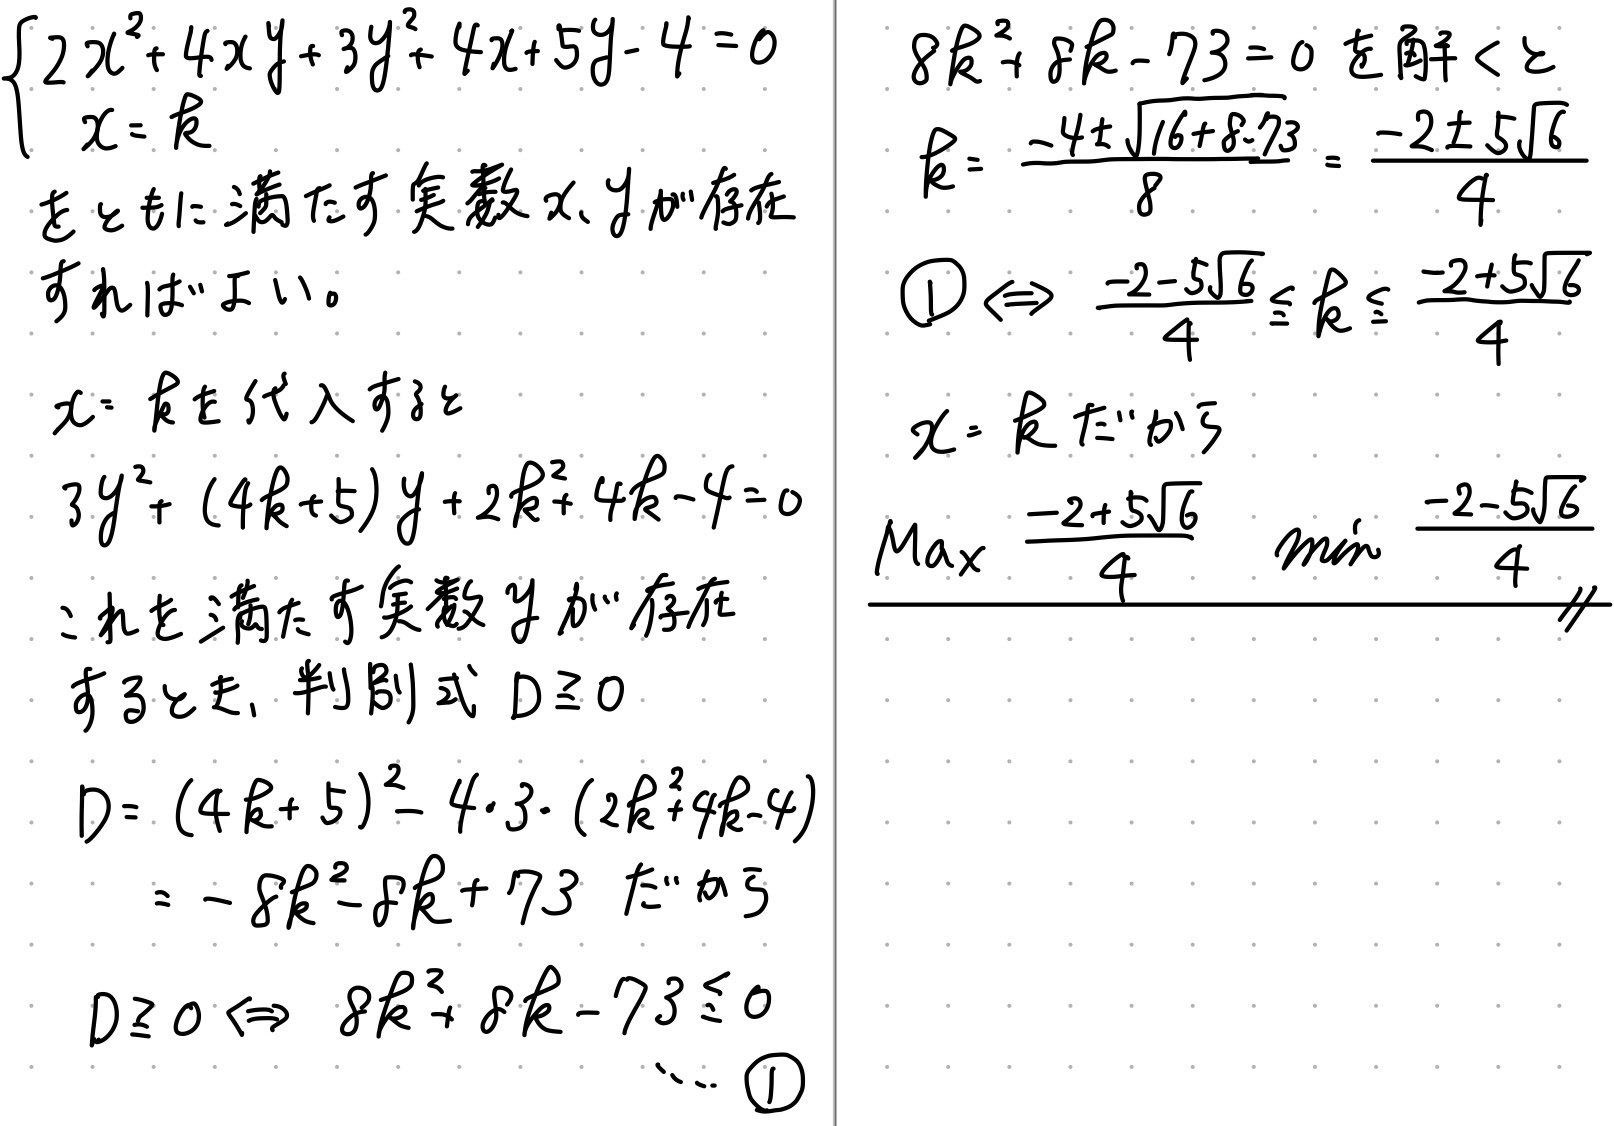 { 2x²+4xy+3y²+4x+5y-4=0
x=k
をともに満たす実数x、yが存在
すればよい。
x=kを代入すると
3y²+(4k+5)y+2k²+4k-4=0
これを満たす実数yが存在
するとき、判別式 D≧0
D=(4k+5)²-4・3・(2k²+4k-4)
=-8k²-8k+73 だから
D≧0⇔8k²+8k-73≦0
…①
8k²+8k-73=0を解くと
k=(-4±√(16+8・73))/8=(-2±5√6)/4
①⇔(-2-5√6)/4≦k≦(-2+5√6)/4
x=kだから
Max (-2+5√6)/4 min (-2-5√6)/4